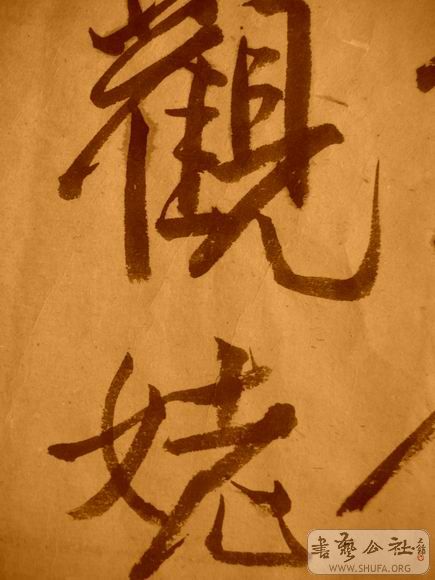 觀
姥
書藝公社
WWW.SHUFA.ORG